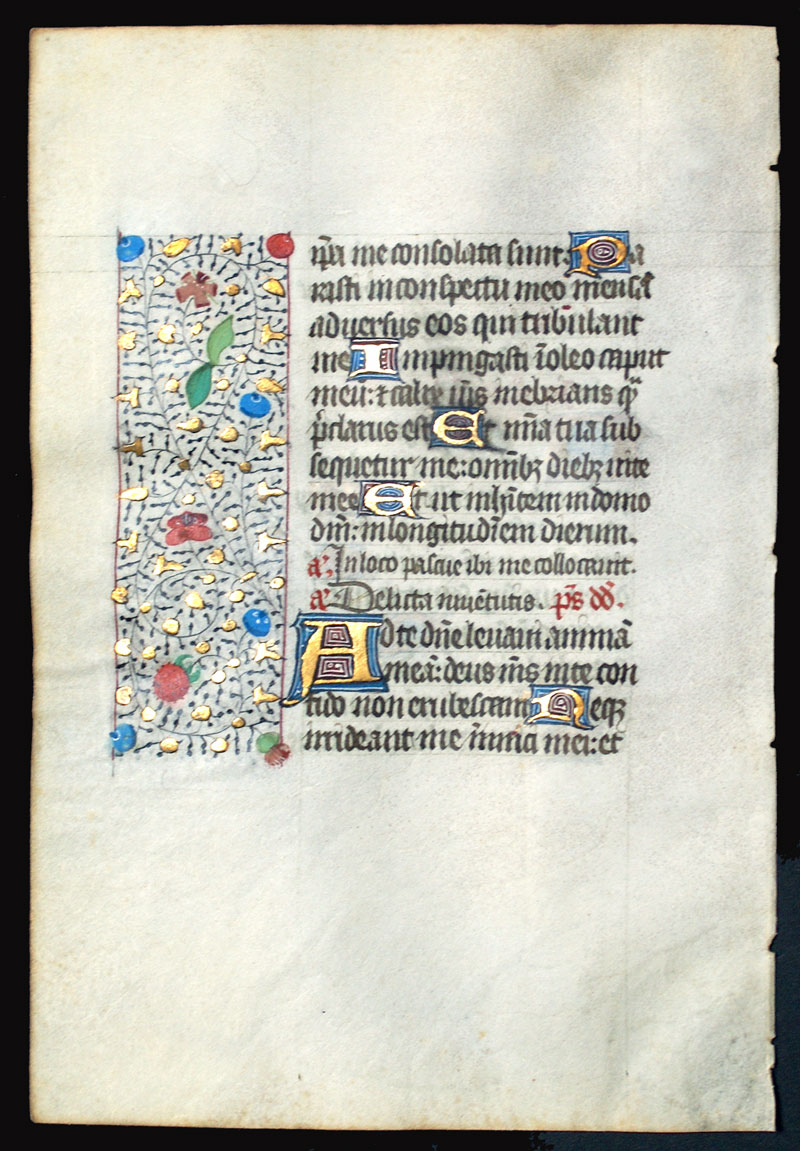 ip̄a me consolata sunt. Pa
rasti in conspectu meo mensā
adversus eos qui tribulant
me Impingasti ī oleo caput
meū: et calix m̄s inebrians q̄
p̄clarus est Et m̄ia tua sub
sequetur me: omībꝫ diebꝫ vite
mee Et ut inhītem in domo
dm̄: in longitudīem dierum.
an̄. In loco pascue ibi me collocavit.
an̄. Delicta iuvētutis. p̄s dd̄.
Ad te dn̄e levavi animā
meā: deus m̄s in te con
fido non erubescam Neqꝫ
irrideant me īimici mei: et